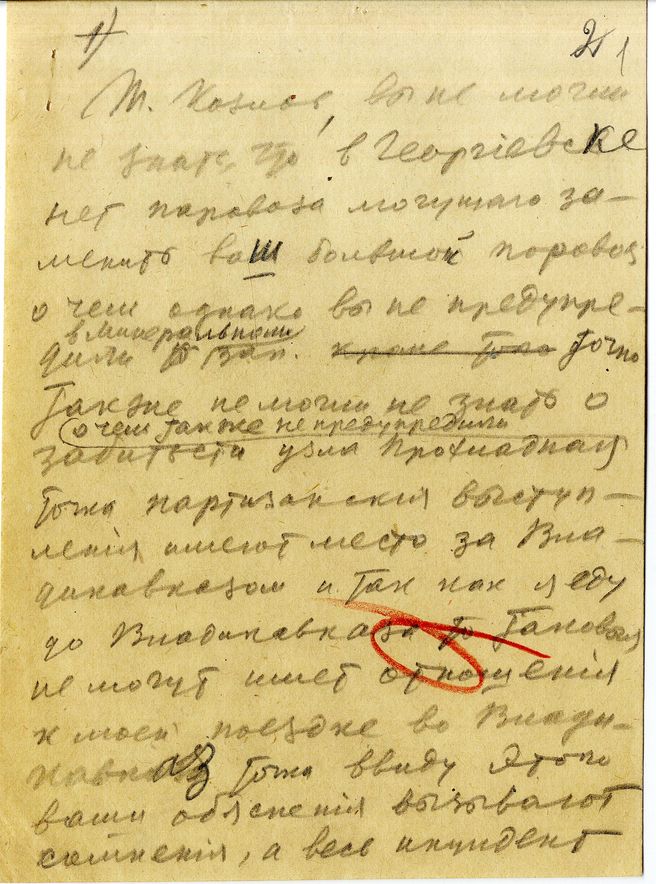 1) 21
Т. Козлов, вы не могли
не знать, что в Георгіевске
нет паровоза могущаго за-
менить ваш большой поровоз
о чем однако вы не предупре-
в минеральными
дили вод. точно
также не могли не знать о
о чем также не предупредили
забитости узла Прохладная
точка партизанскія выступ-
ленія имеют место за Вла-
дикавказом и так как я еду
до Владикавказа то таковыя
не могут имет отношенія
к моей поездке во Влади-
кавказ точка ввиду этого
ваши обясненія вызывают
сомненія, а весь инцидент